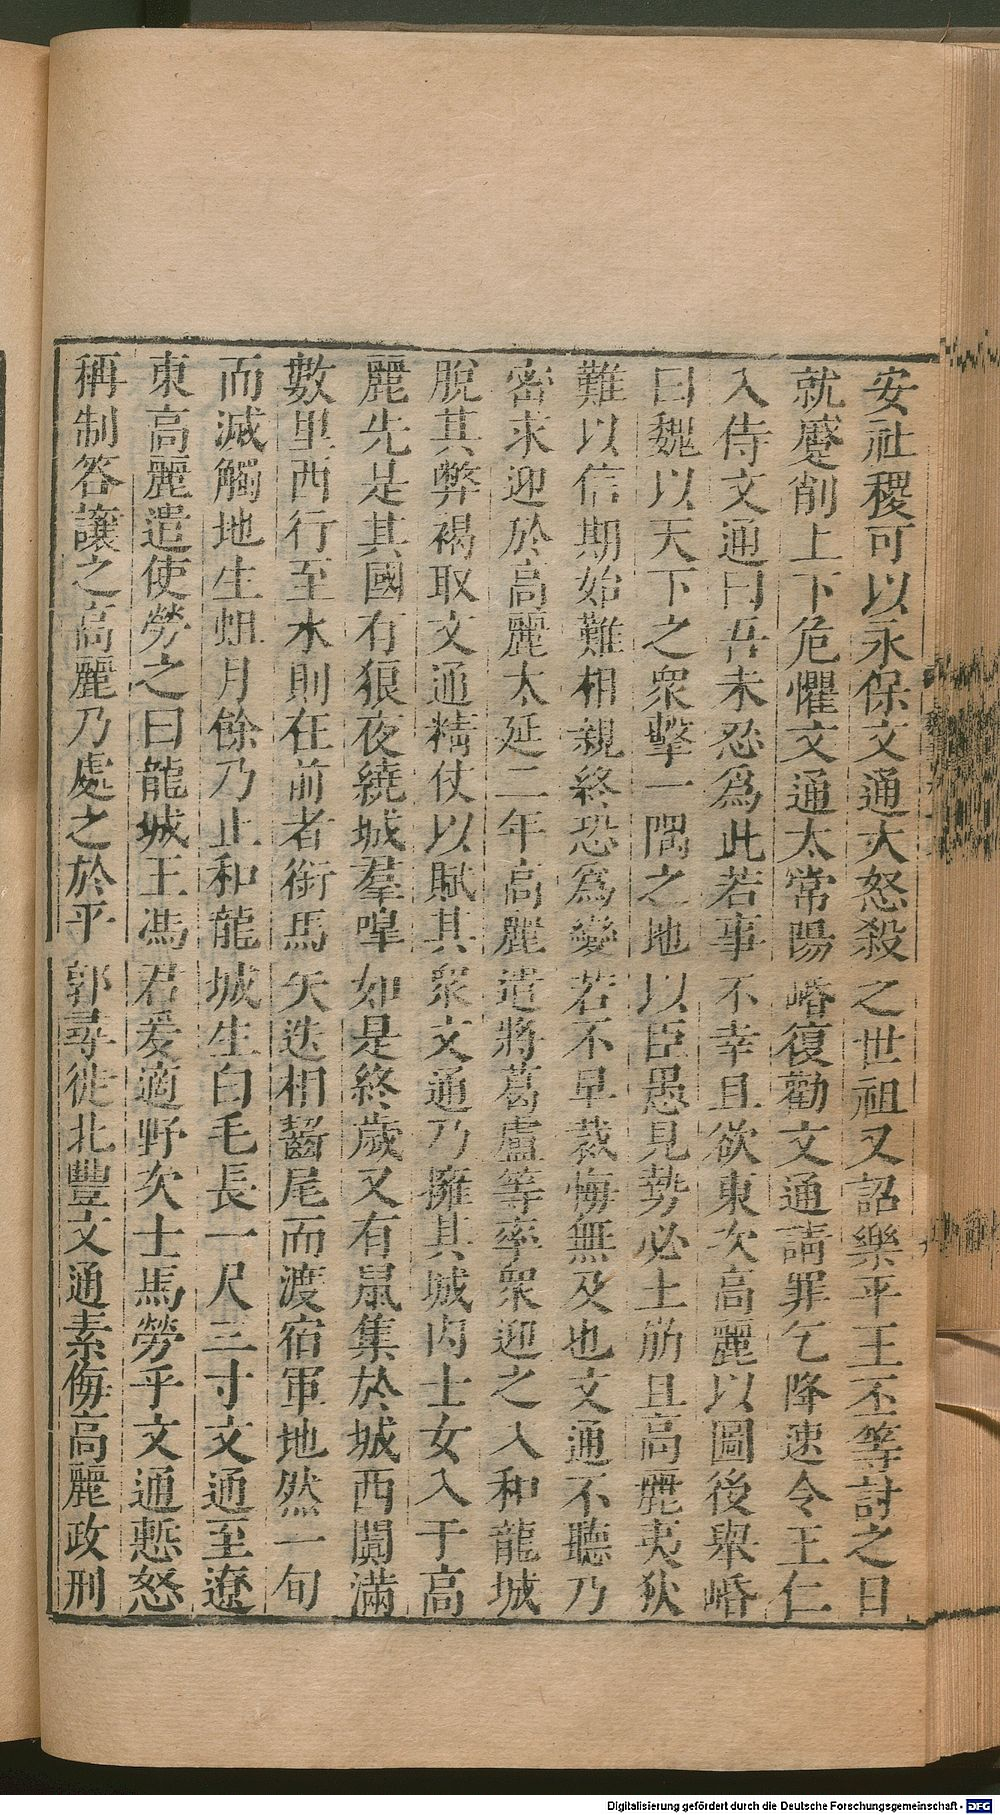 安社稷可以永保文通大怒殺之世祖又詔樂平王丕等討之日
就蹙削上下危懼文通太常陽㟭復勸文通請罪乞降速令王仁
入侍文通曰吾未忍為此若事不幸且欲東次高麗以圖後舉㟭
曰魏以天下之衆擊一隅之地以臣愚見勢必土崩且高麗夷狄
難以信期始難相親終恐為變若不早裁悔無及也文通不聽乃
密求迎於高麗太延二年高麗遣將葛盧等率衆迎之入和龍城
脫其弊褐取文通精仗以賦其衆文通乃擁其城內士女入于高
麗先是其國有狼夜繞城羣嘷如是終歲又有鼠集於城西闐滿
數里西行至水則在前者銜馬矢迭相齧尾而渡宿軍地然一旬
而滅觸地生蛆月餘乃止和龍城生白毛長一尺二寸文通至遼
東高麗遣使勞之曰龍城王馮君爰適野次士馬勞乎文通慙怒
稱制答讓之高麗乃處之於平郭尋徙北豐文通素侮高麗政刑
Digitalisierung gefördert durch die Deutsche Forschungsgemeinschaft - DFG